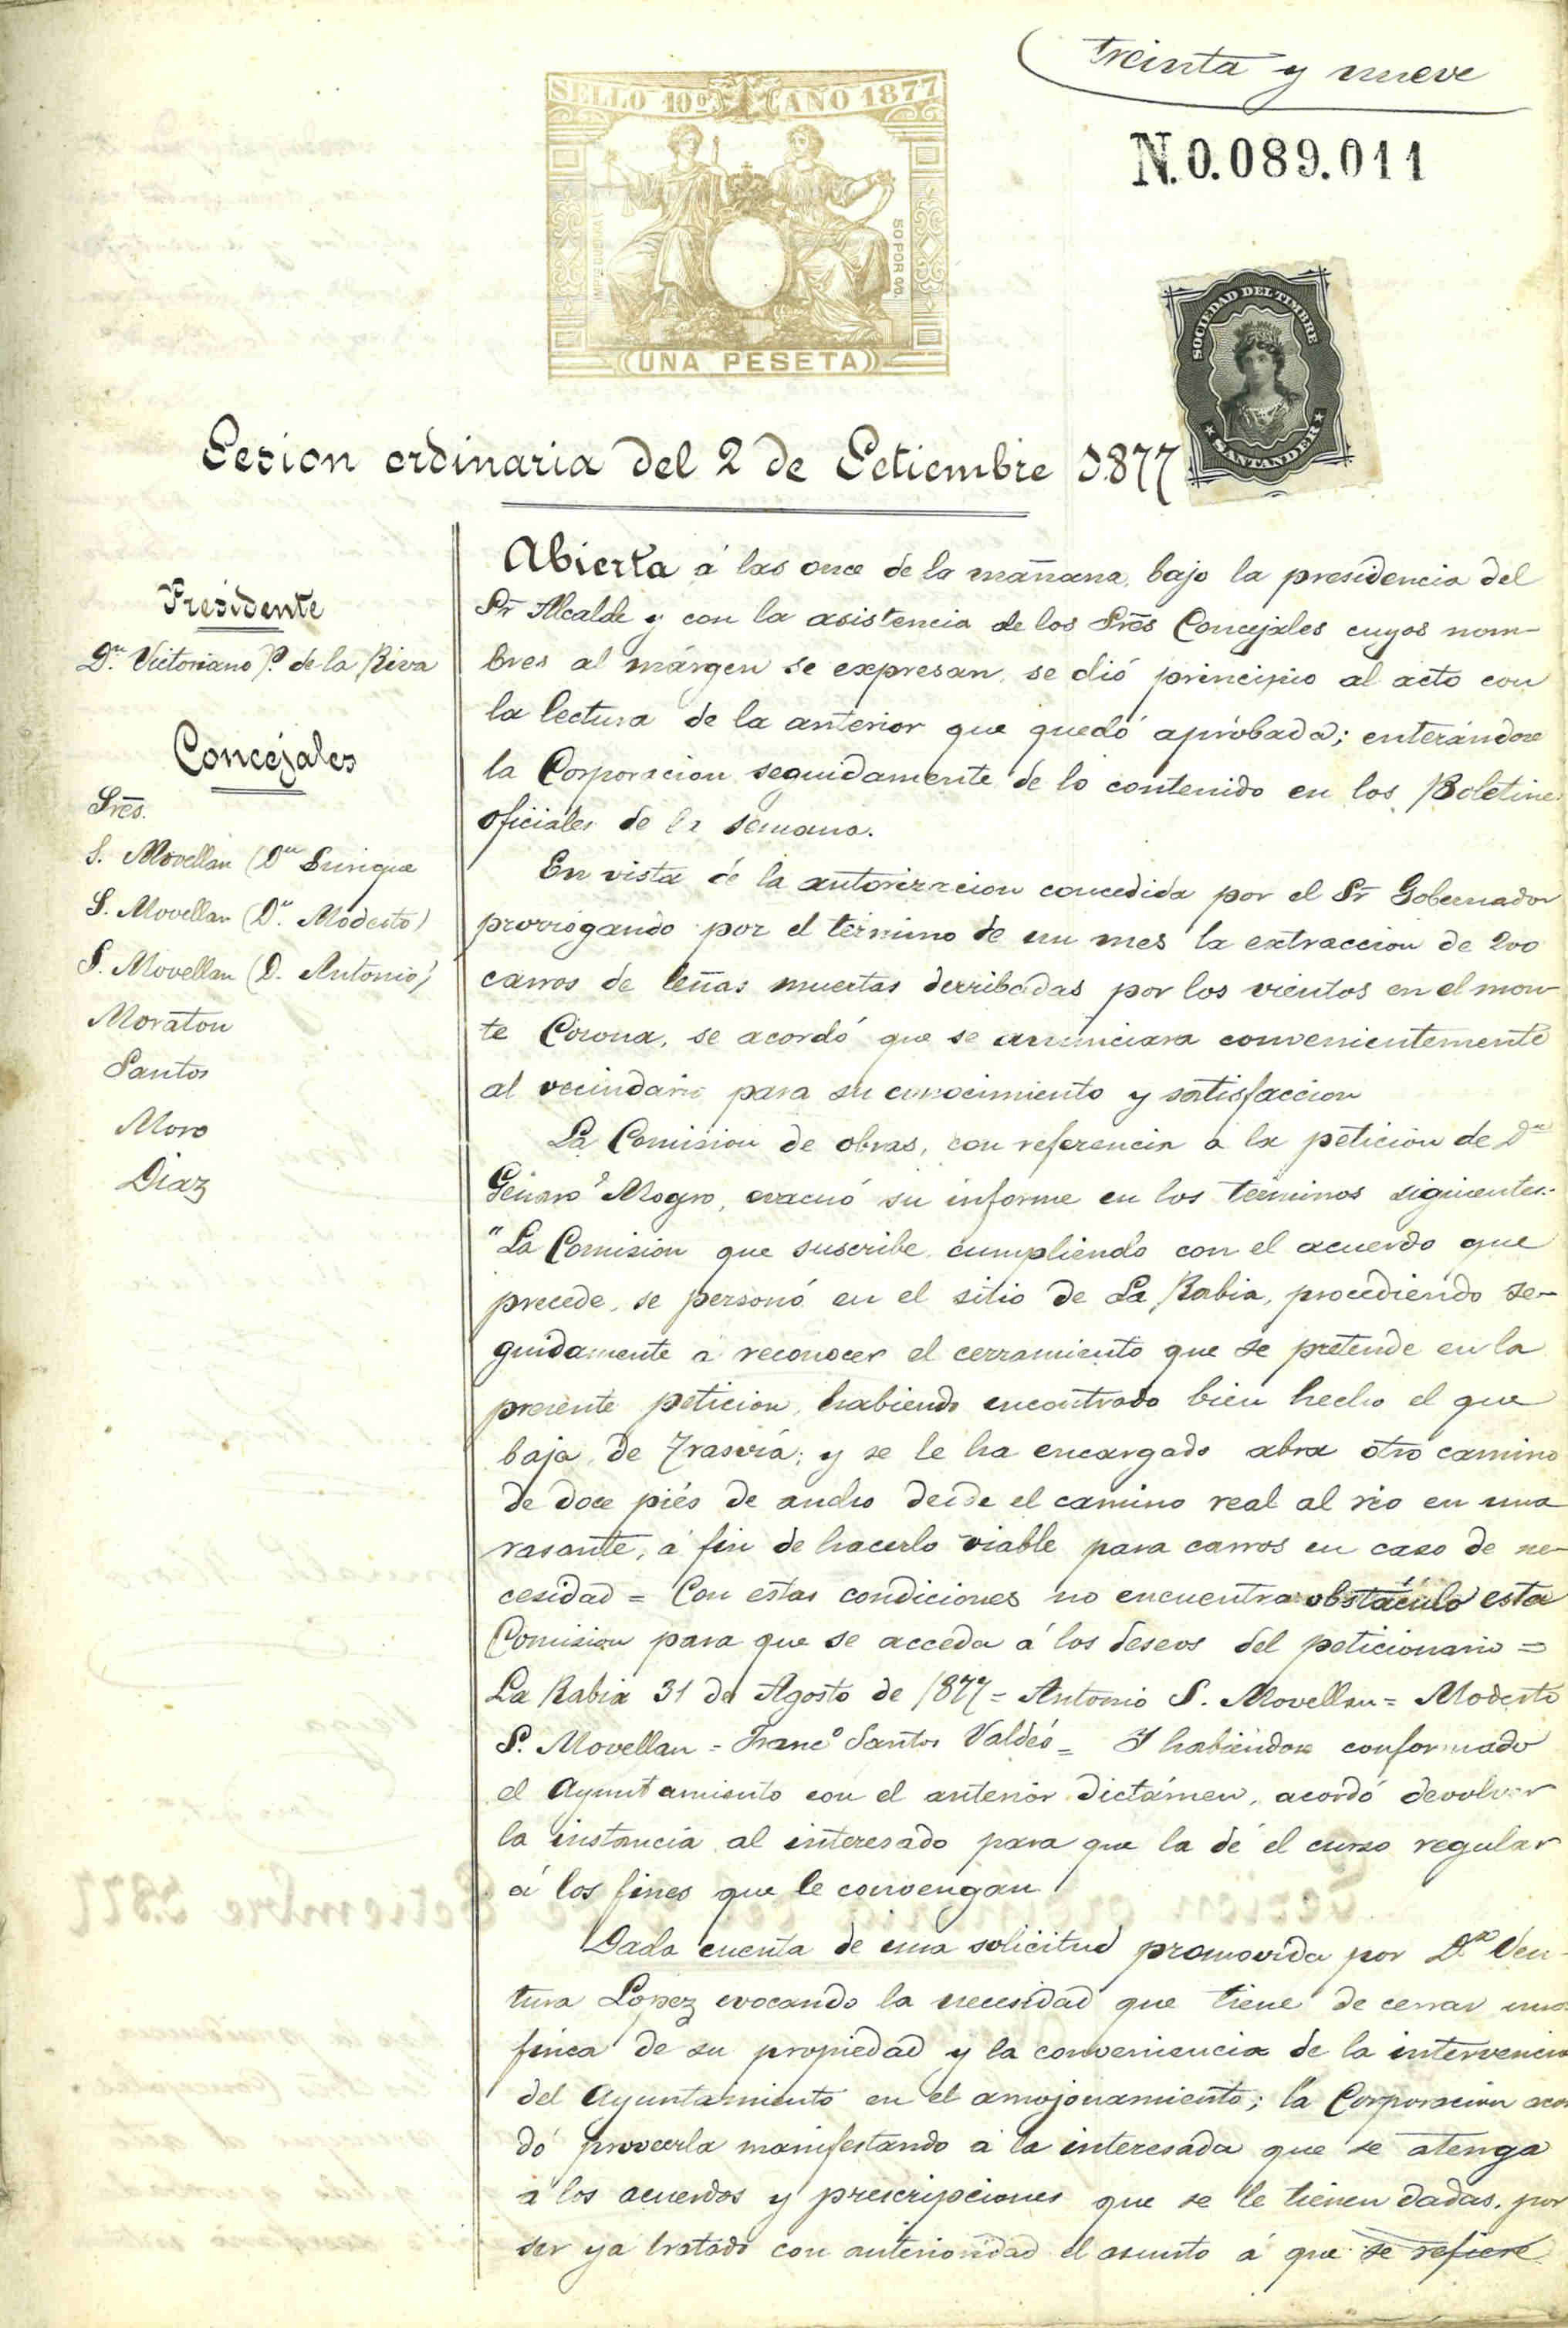 treinta y nueve
SELLO 10º AÑO 1877
N.0.089.011
50 POR 0/0.
(UNA PESETA)
SOCIEDAD DEL TIMBRE
SANTANDER
Sesion ordinaria del 2 de Setiembre 1877
Presidente
Dn. Victoriano P. de la Riva
Concejales
Sres.
S. Movellan (Dn Enrique
S. Movellan (Dn. Modesto)
S. Movellan (D. Antonio)
Moraton
Santos
Moro
Diaz
Abierta á las once de la mañana, bajo la presidencia del
Sr Alcalde y con la asistencia de los Sres Concejales cuyos nom-
bres al márgen se expresan, se dió principio al acto con
la lectura de la anterior que quedó aprobada; enterándose
la Corporacion seguidamente de lo contenido en los Boletines
oficiales de la semana.
En vista de la autorizacion concedida por el Sr Gobernador
prorrogando por el término de un mes la extraccion de 200
carros de leñas muertas derribadas por los vientos en el mon-
te Corona, se acordó que se anunciara convenientemente
al vecindario para su conocimiento y satisfaccion
La Comision de obras, con referencia a la peticion de Dn
Genaro Mogro, evacuó su informe en los términos siguientes:
"La Comision que suscribe cumpliendo con el acuerdo que
precede, se personó en el sitio de La Rabia, procediendo se-
guidamente a reconocer el cerramiento que se pretende en la
presente peticion, habiendo encontrado bien hecho el que
baja de Trasvía; y se le ha encargado abra otro camino
de doce piés de ancho desde el camino real al rio en una
rasante, á fin de hacerlo viable para carros en caso de ne-
cesidad = Con estas condiciones no encuentra obstáculo esta
Comision para que se acceda á los deseos del peticionario =
La Rabia 31 de Agosto de 1877 = Antonio S. Movellan = Modesto
S. Movellan = Franco Santos Valdés = Y habiéndose conformado
el Ayuntamiento con el anterior dictámen, acordó devolver
la instancia al interesado para que la dé el curso regular
á los fines que le convengan
Dada cuenta de una solicitud promovida por Dª Ven-
tura Lopez evocando la necesidad que tiene de cerrar una
finca de su propiedad y la conveniencia de la intervencion
del Ayuntamiento en el amojonamiento; la Corporacion acor
dó proveerla manifestando á la interesada que se atenga
á los acuerdos y prescripciones que se le tienen dadas, por
ser ya tratado con anterioridad el asunto á que se refiere